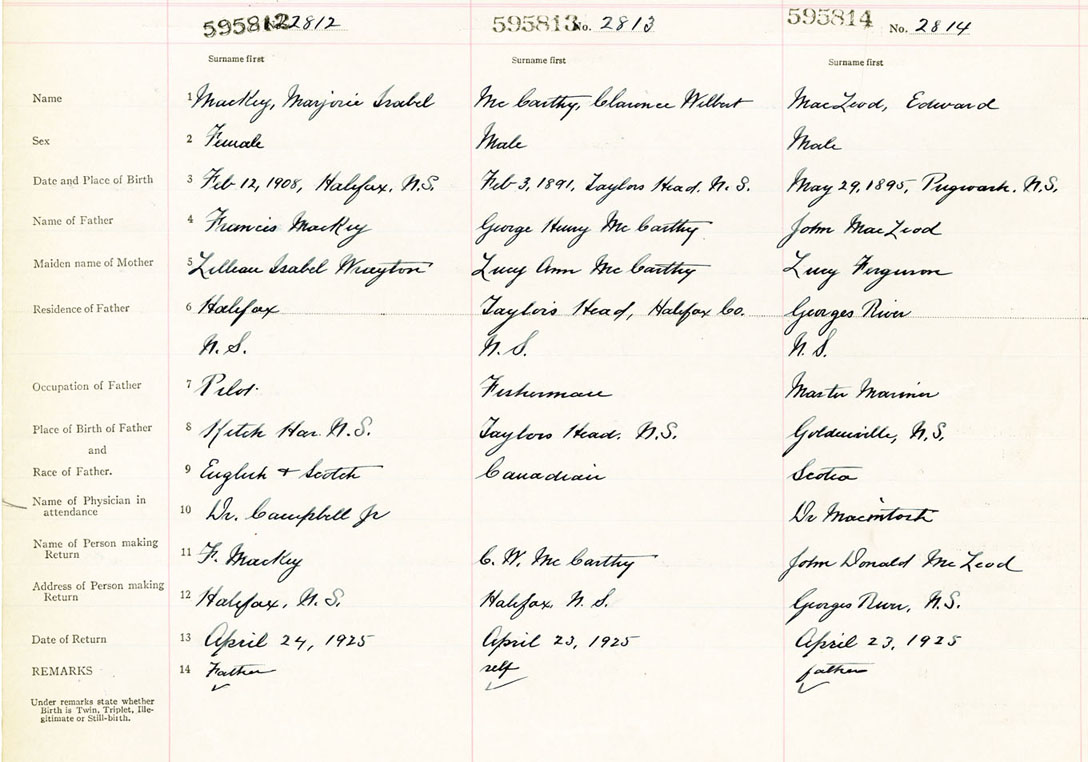 595812 2812 595813 No. 2813 595814 No. 2814
Surname first Surname first Surname first
Name 1 MacKey, Marjorie Isabel Mc Carthy, Clarence Wilbert MacLeod, Edward
Sex 2 Female Male Male
Date and Place of Birth 3 Feb 12, 1908, Halifax, N.S. Feb 3, 1891, Taylors Head, N.S. May 29, 1895, Pugwash. N.S.
Name of Father 4 Francis MacKey George Henry Mc Carthy John MacLeod
Maiden name of Mother 5 Lillian Isabel Wrayton Lucy Ann Mc Carthy Lucy Ferguson
Residence of Father 6 Halifax Taylors Head, Halifax Co. Georges River
N.S. N.S. N.S.
Occupation of Father 7 Pilot Fisherman Master Mariner
Place of Birth of Father 8 Ketch Har. N.S. Taylors Head. N.S. Goldenville, N.S.
and
Race of Father. 9 English + Scotch Canadian Scotia
Name of Physician in
attendance 10 Dr. Campbell Jr Dr Macintosh
Name of Person making
Return 11 F. MacKey C. W. Mc Carthy John Donald McLeod
Address of Person making
Return 12 Halifax, N.S. Halifax, N.S. Georges River, N.S.
Date of Return 13 April 24, 1925 April 23, 1925 April 23, 1925
REMARKS 14 Father self father
Under remarks state whether
Birth is Twin, Triplet, Ille-
gitimate or Still-birth.